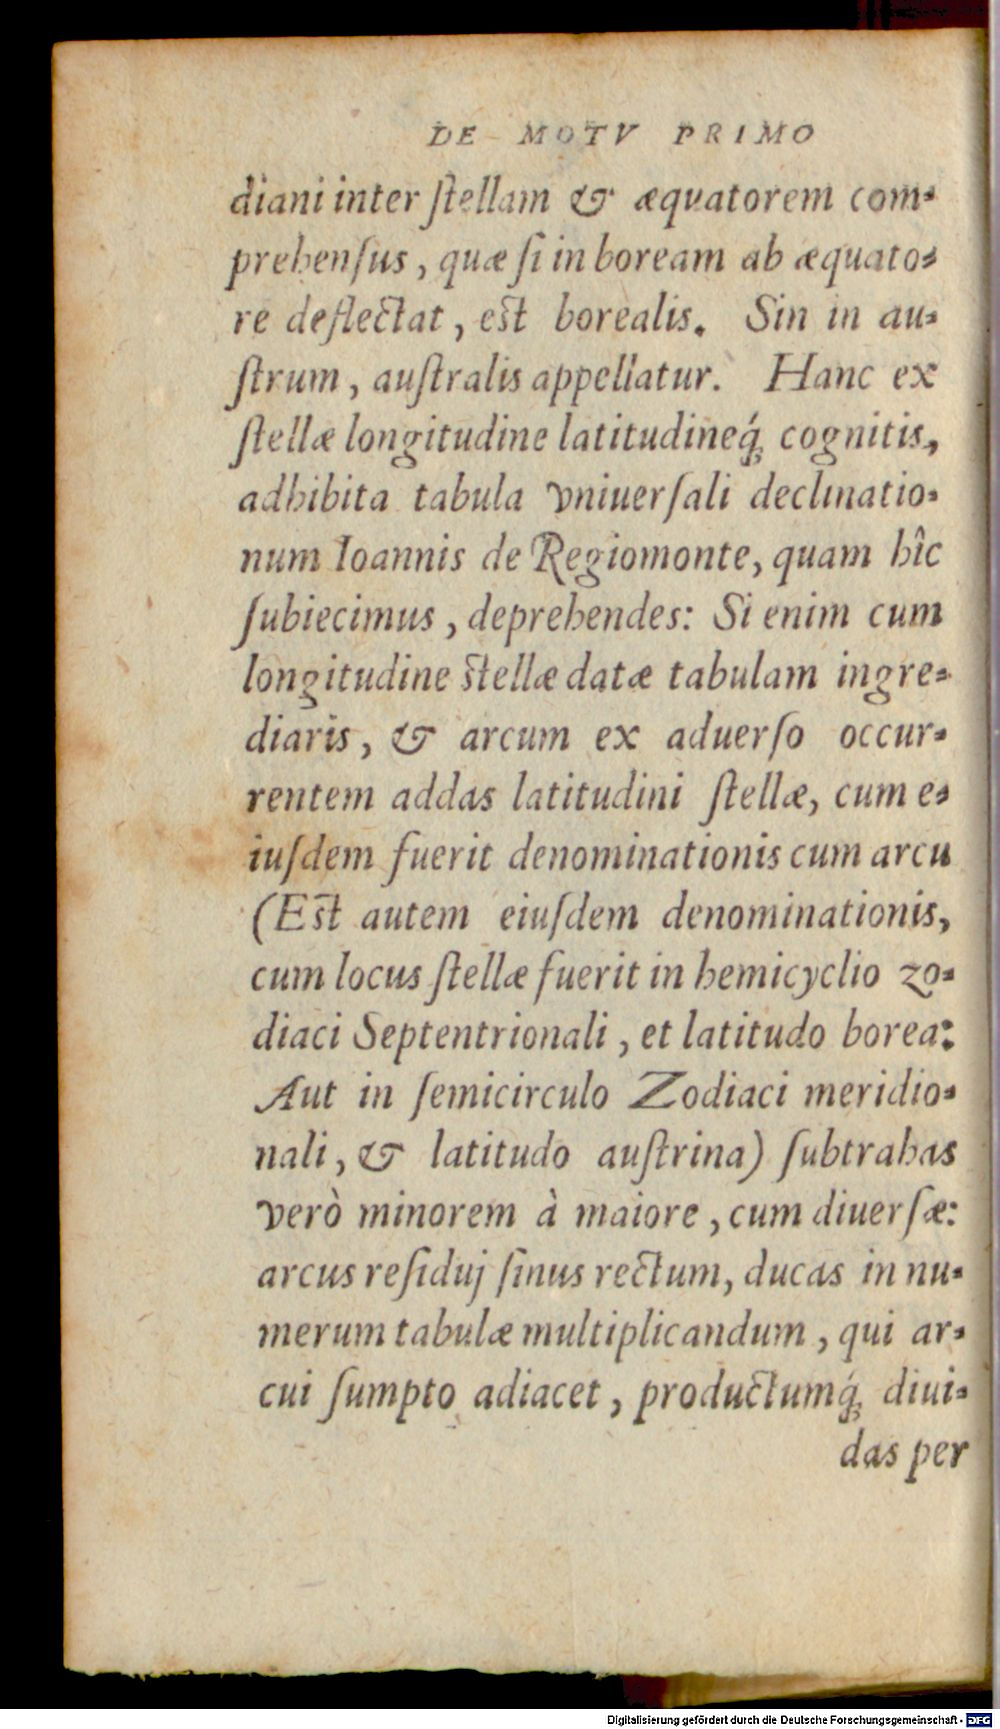 DE MOTV PRIMO
diani inter ſtellam & æquatorem com-
prehenſus, quæ ſi in boream ab æquato-
re deflectat, est borealis. Sin in au-
ſtrum, auſtralis appellatur. Hanc ex
ſtellæ longitudine latitudineq́; cognitis,
adhibita tabula vniuerſali declinatio-
num Ioannis de Regiomonte, quam hîc
ſubiecimus, deprehendes: Si enim cum
longitudine stellæ datæ tabulam ingre-
diaris, & arcum ex aduerſo occur-
rentem addas latitudini ſtellæ, cum e-
iuſdem fuerit denominationis cum arcu
(Est autem eiuſdem denominationis,
cum locus ſtellæ fuerit in hemicyclio zo-
diaci Septentrionali, et latitudo borea:
Aut in ſemicirculo Zodiaci meridio-
nali, & latitudo auſtrina) ſubtrahas
verò minorem à maiore, cum diuerſæ:
arcus reſiduj ſinus rectum, ducas in nu-
merum tabulæ multiplicandum, qui ar-
cui ſumpto adiacet, productumq́; diui-
das per
Digitalisierung gefördert durch die Deutsche Forschungsgemeinschaft - DFG